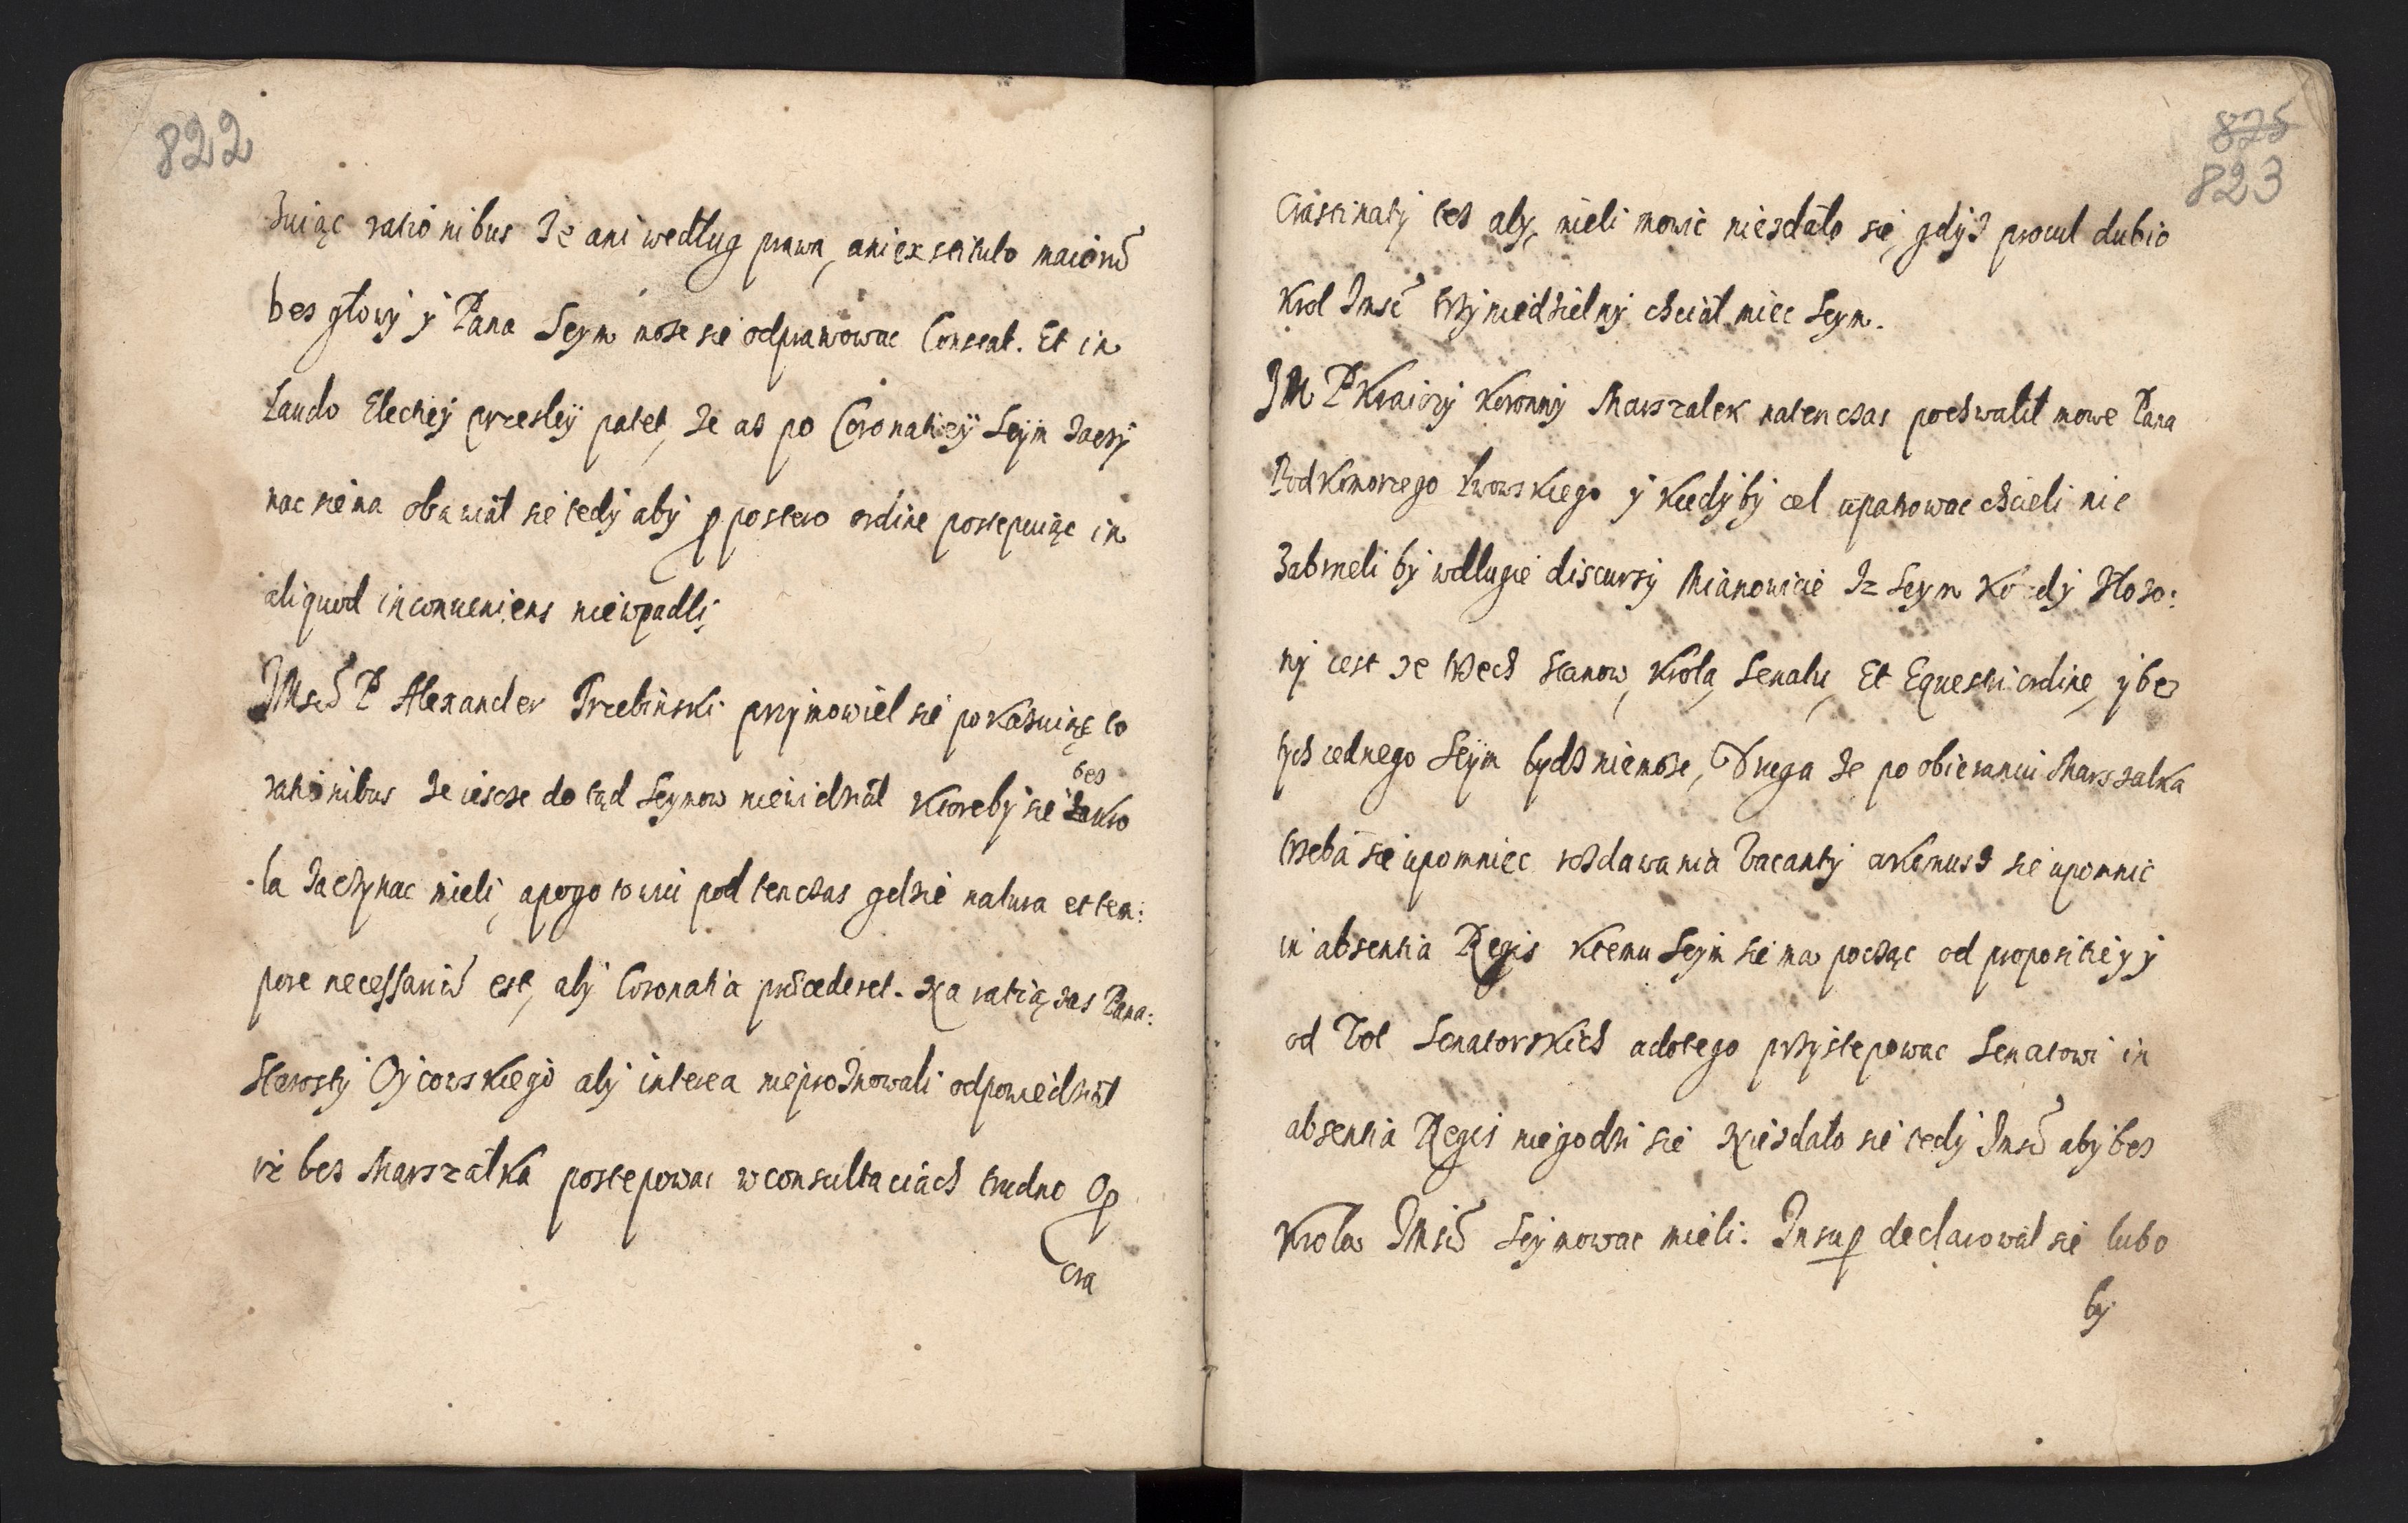 822
zuiąc rationibus Iz ani według prawa, ani ex scitulo maiorũ
bes głowy y Pana Seym może sie odprawowac Constat. Et in
Laudo Elechiey przesłey patet, że aż po Coronatiey Seym zaczy
nac sie ma obawiał sie tedy aby ꝓ postero ordine postępuiąc in
aliquod inconueniens niewpadli,
JMsc̃ P Alexander Trzebinski przymowiel sie pokazuiąc to
rationibus że iescze dotąd Seymow niewidział ktoreby sie bes kro
la zaczynac mieli, apogotowiu pod tenczas gdzie natura et tem:
pore necessariũ est, aby Coronatia præcederet. Na ratią zas Pana:
Starosty Oycowskiego aby interea nieproznowali odpowiedział
iż bes Marszałka postepowac w consultaciach trudno ꝓ
cra
825
823
Crastinaty tes aby, mieli mowic niezdało sie, gdyż procul dubio
Krol Jmsc̃ trzyniedzielny chciał miec Seym.
JM P Kraiczy Koronny Marszalek natenczas pochwalił mowe Pana
Podkomorzego Lwowskiego y kiedyby cel upatrowac chcieli nie
zabrneli by wdlugie discursy Mianowicie Iz Seym Kozdy złozo:
ny iest ze trzech stanow, Krola, Senatu, Et Equestri ordine, y bez
tych iednego Seym bydz niemoze, Druga ze po obieraniu Marszalka
trzeba sie upomniec rozdawania Vacanty a komusz sie upomnic
in absentia Regis ktemu Seym sie ma począc od propositiey y
od Vot Senatorskich adotego przystepowac Senatowi in
absentia Regis niegodzi sie Niezdało sie tedy Jmsc̃ aby bes
Krola JMsc̃ Seymowac mieli. Insuꝑ declarował sie lubo
by